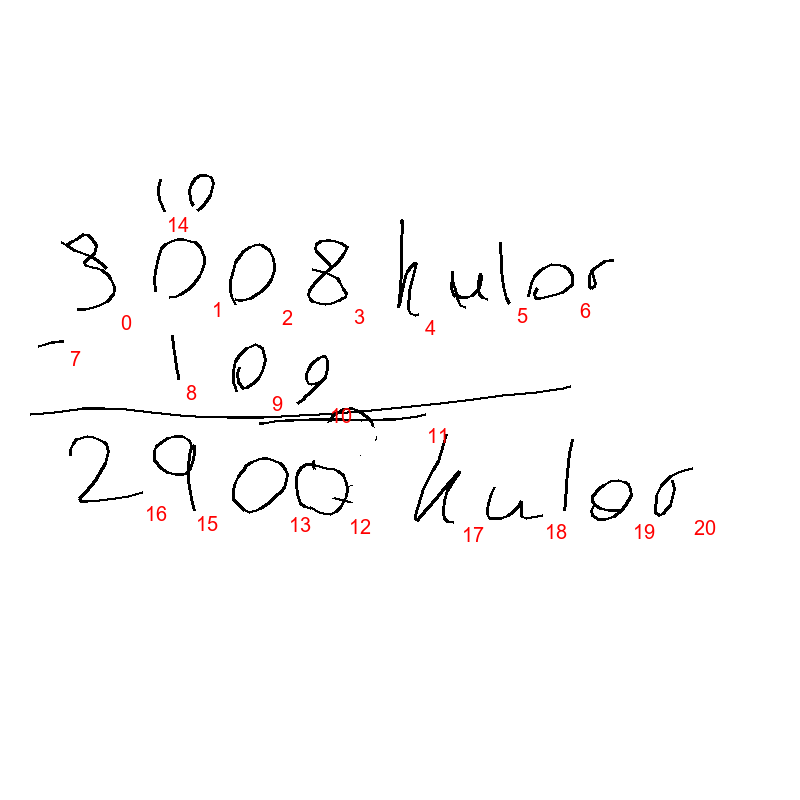 10
14
3008 kulor
0 1 2 3 4 5 6
- 109
7 8 9 10 11
2900 kulor
16 15 13 12 17 18 19 20